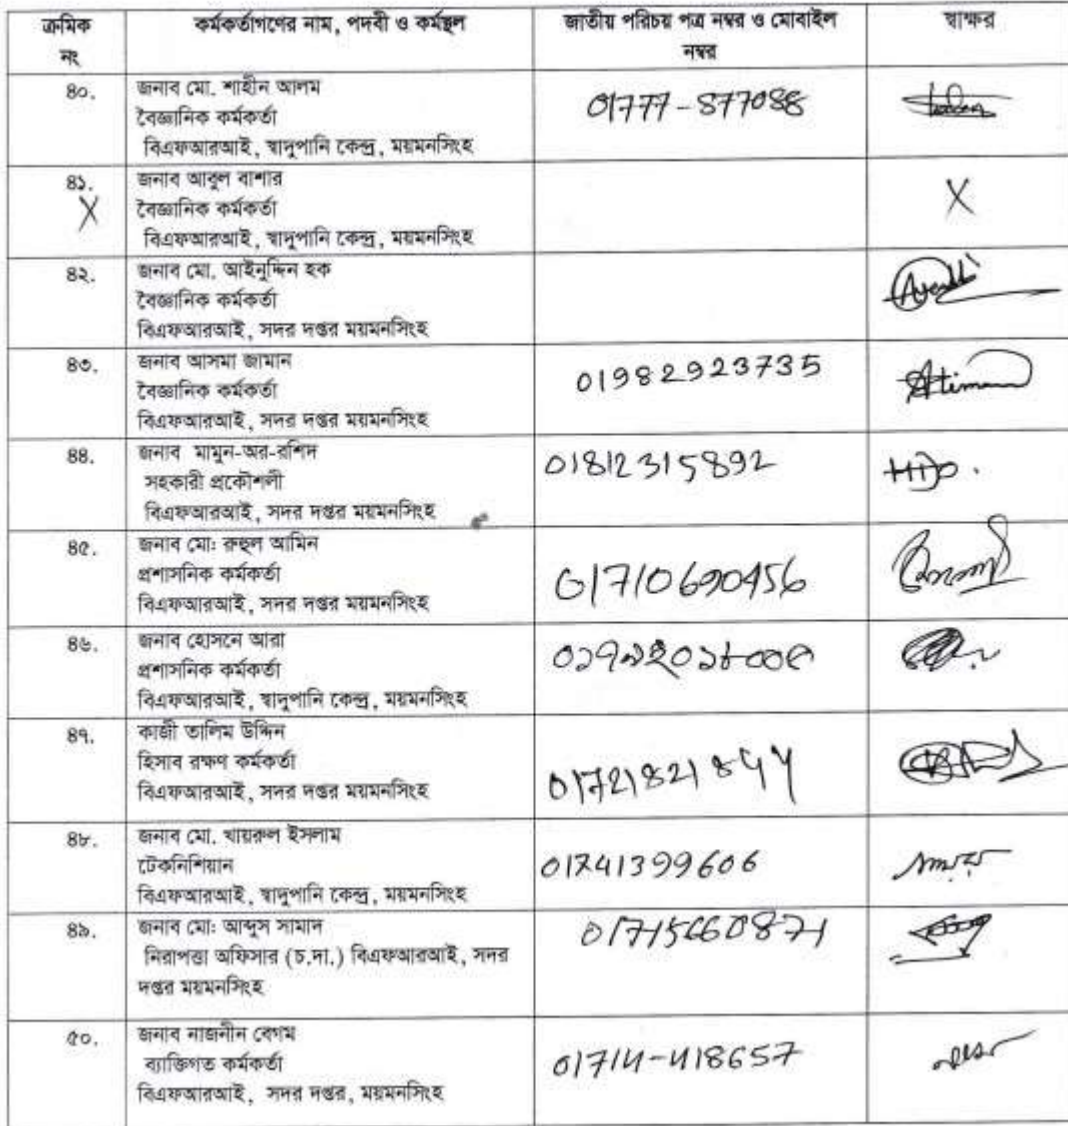 ক্রমিক নং কর্মকর্তাগণের নাম, পদবী ও কর্মস্থল জাতীয় পরিচয় পত্র নম্বর ও মোবাইল নম্বর স্বাক্ষর
৪০. জনাব মো. শাহীন আলম
বৈজ্ঞানিক কর্মকর্তা
বিএফআরআই, স্বাদুপানি কেন্দ্র, ময়মনসিংহ
01777-877088
৪১. জনাব আবুল বাশার
X
বৈজ্ঞানিক কর্মকর্তা
বিএফআরআই, স্বাদুপানি কেন্দ্র, ময়মনসিংহ
X
৪২. জনাব মো. আইনুদ্দিন হক
বৈজ্ঞানিক কর্মকর্তা
বিএফআরআই, সদর দপ্তর ময়মনসিংহ
৪৩. জনাব আসমা জামান
বৈজ্ঞানিক কর্মকর্তা
বিএফআরআই, সদর দপ্তর ময়মনসিংহ
01982923735
৪৪. জনাব মামুন-অর-রশিদ
সহকারী প্রকৌশলী
বিএফআরআই, সদর দপ্তর ময়মনসিংহ
01812315892
৪৫. জনাব মো: রুহুল আমিন
প্রশাসনিক কর্মকর্তা
বিএফআরআই, সদর দপ্তর ময়মনসিংহ
01710690456
৪৬. জনাব হোসনে আরা
প্রশাসনিক কর্মকর্তা
বিএফআরআই, স্বাদুপানি কেন্দ্র, ময়মনসিংহ
৪৭. কাজী তালিম উদ্দিন
হিসাব রক্ষণ কর্মকর্তা
বিএফআরআই, সদর দপ্তর ময়মনসিংহ
৪৮. জনাব মো. খায়রুল ইসলাম
টেকনিশিয়ান
বিএফআরআই, স্বাদুপানি কেন্দ্র, ময়মনসিংহ
01741399606
৪৯. জনাব মো: আব্দুস সামাদ
নিরাপত্তা অফিসার (চ.দা.) বিএফআরআই, সদর
দপ্তর ময়মনসিংহ
01715660871
৫০. জনাব নাজনীন বেগম
ব্যাক্তিগত কর্মকর্তা
বিএফআরআই, সদর দপ্তর, ময়মনসিংহ
01714-418657